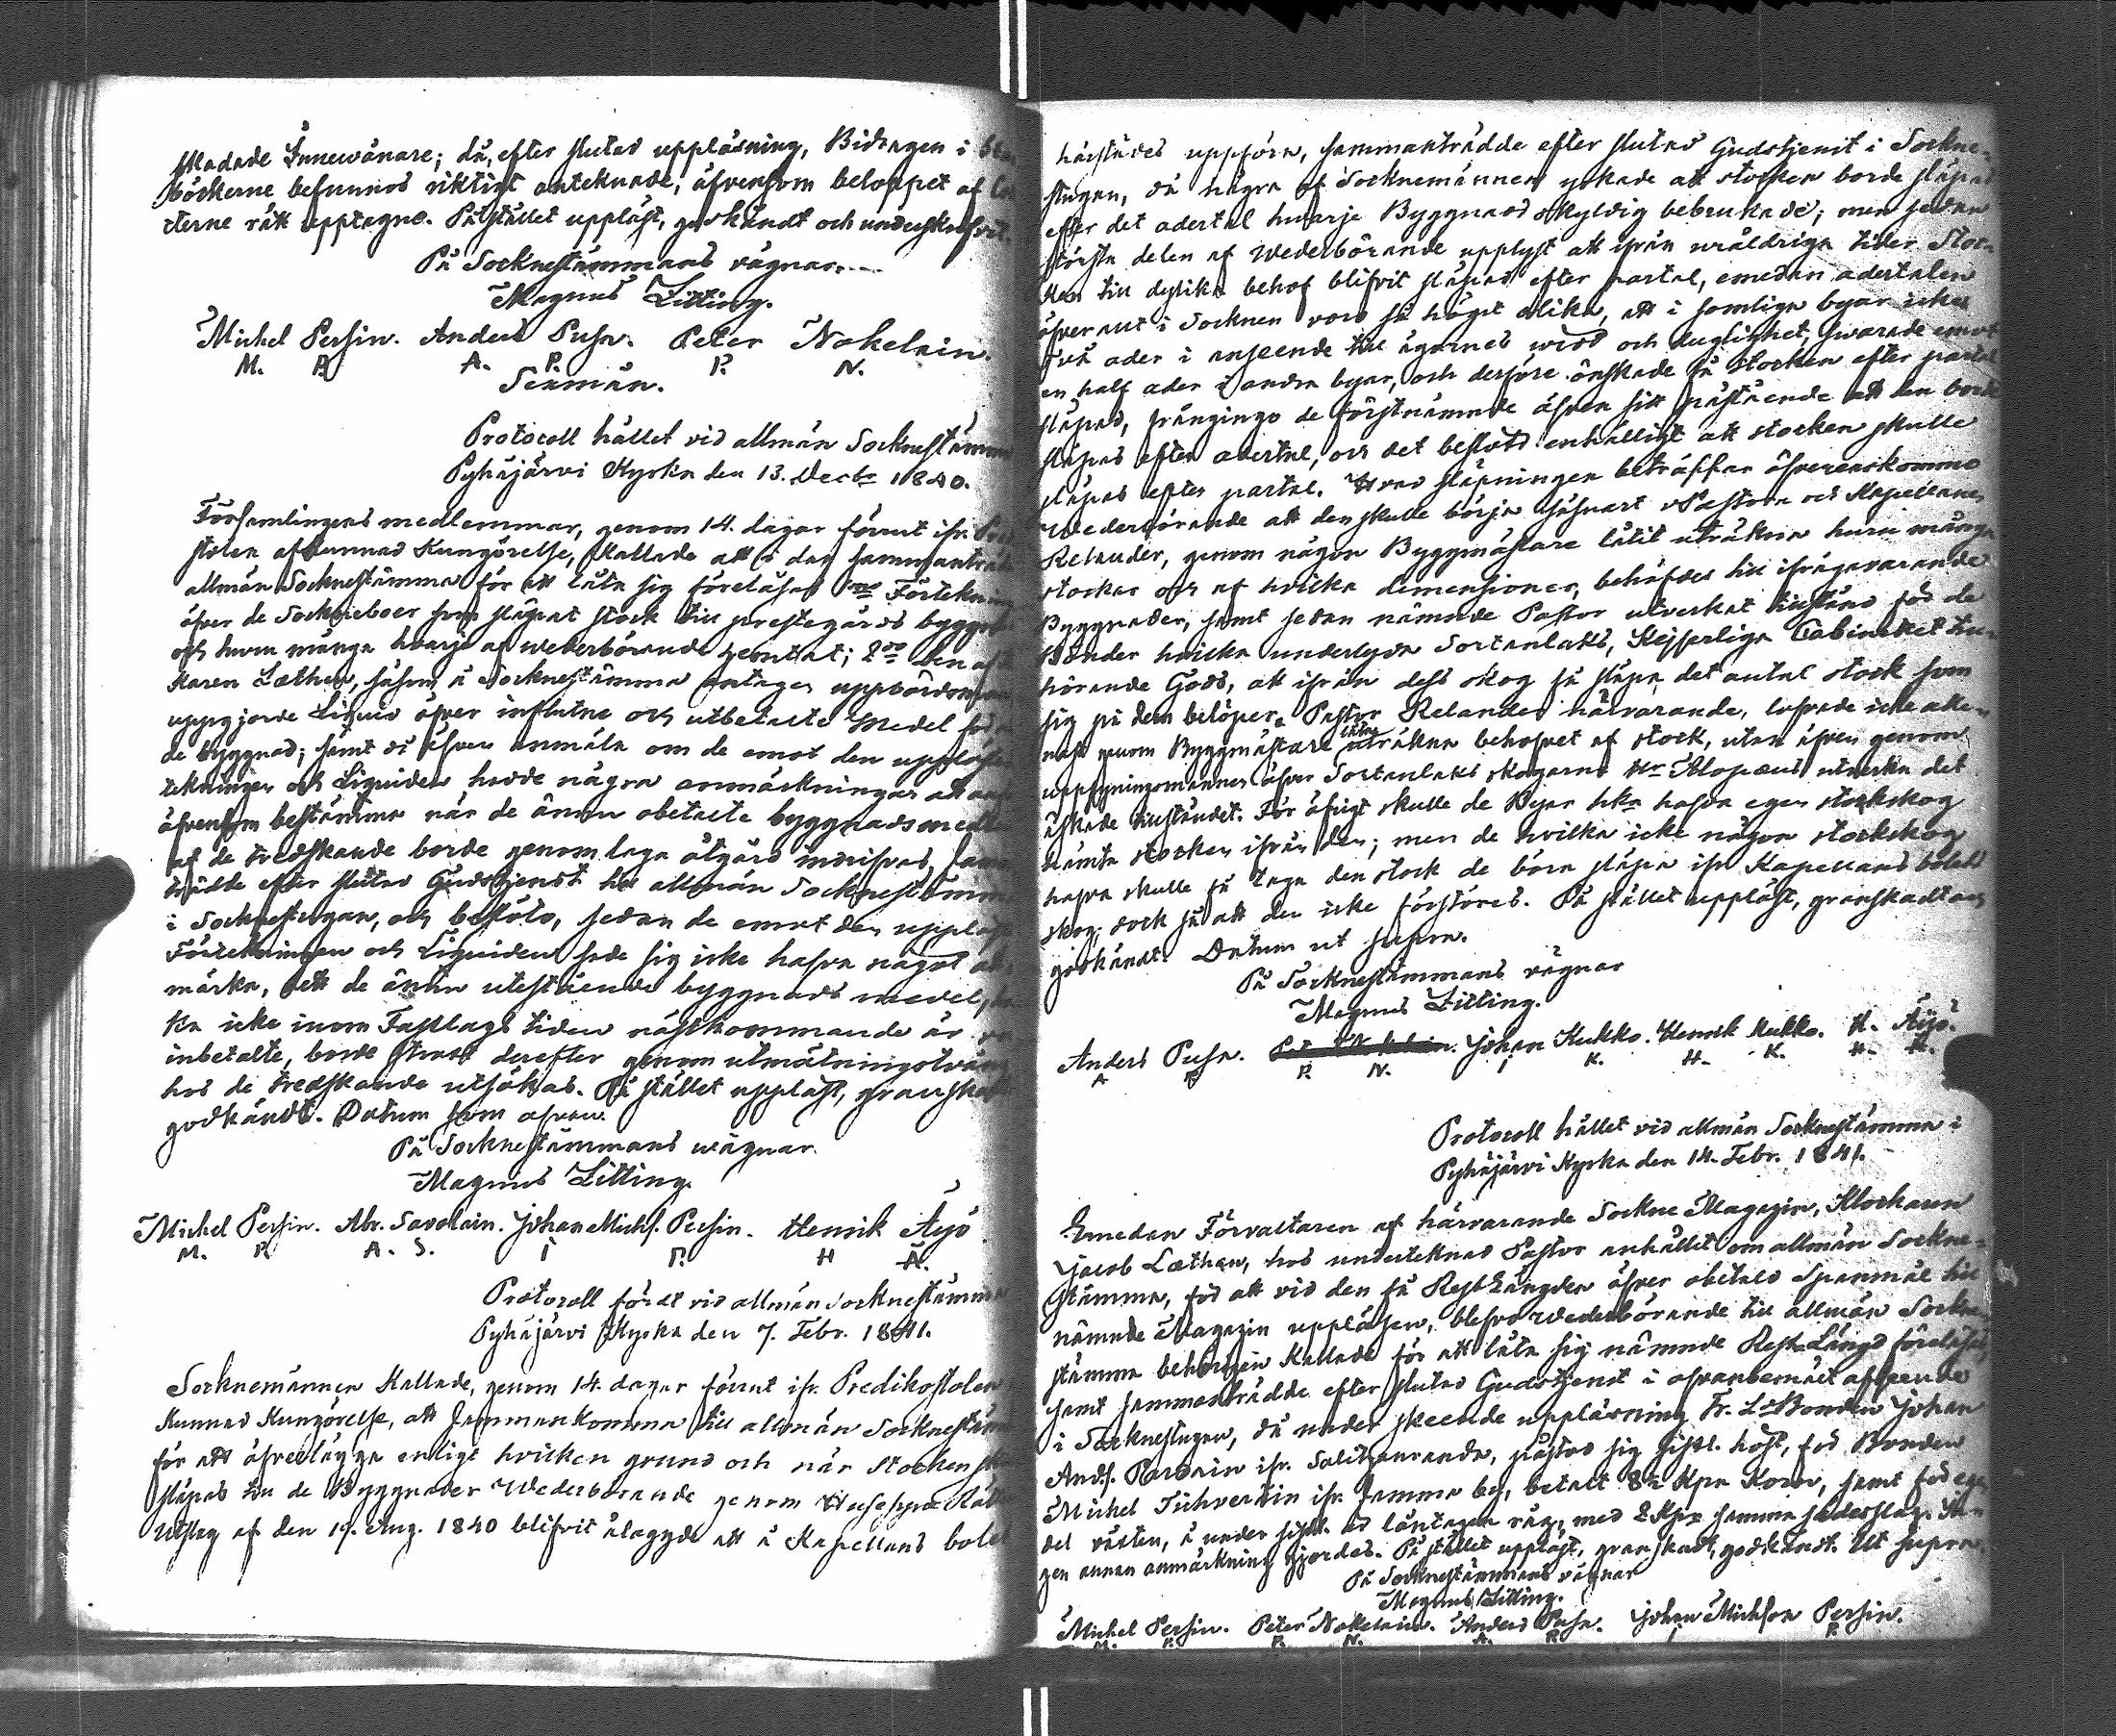 skadade Innewånare; då, efter slutad uppläsning, Bidragen i
böckerne befunnos riktigt antecknade, äfvensom beloppet af
cterne rätt upptagne. På stället uppläst, godkändt och underskrifvit.
På Socknestämmans vägnar.
Magnus Litting.
Michel Persin. Anders Pusa. Peter Nokelain.
M. P. A. P. P. N.
Sexmän.
Protocoll hållet vid allmän Socknestämma
Pyhäjärvi Kyrka den 13. Decbr 1840.
Församlingens medlemmar, genom 14. dagar förut ifr.
stolen afkunnad Kungörelse, kallade att i dag sammanträda
allmän Socknestämma för att låta sig föreläsas 1mo Förtekning
öfver de Sockneboer som släpat stock till prestegårds byggnad
och huru många hvarje af wederbörande hemtat; 2do den af
karen Læthen, såsom å Socknestämma antagen uppbördsman
uppgjorde Liquid öfver influtne och utbetalte medel för
de byggnad; samt då äfven anmäla om de emot den uppläste
tekningen och Liquiden hade några anmärkningar att
äfvensom bestämma när de ännu obetalte byggnadsmedlen
af de tredskande borde genom laga åtgärd indrifvas,
trädde efter slutad Gudstjenst till allmän Socknestämma
i Socknestugan, och beslöto, sedan de emot den uppläste
Förtekningen och Liquiden sade sig icke hafva något
märka, att de ännu utestående byggnads medel,
ka icke inom Fastlags tiden nästkommande år
inbetalte, borde strax derefter genom utmätningstvång
hos de tredskande utsökas. På stället uppläst, granskadt
godkändt. Datum som ofvan.
På Socknestämmans wägnar.
Magnus Litting.
Michel Persin. Abr. Savolain. Johan Michs. Persin. Henrik Äijö
M. P. A. S. I P. H Ä.
Protocoll fördt vid allmän Socknestämma
Pyhäjärvi Kyrka den 7. Febr. 1841.
Socknemännen kallade, genom 14. dagar förut ifr. Predikostolen
kunnad Kungörelse, att sammankomma till allmän Socknestämma
för att öfverlägga enligt hvilken grund och när stocken
släpas till de Byggnader Wederbörande genom
Utslag af den 19. Aug. 1840 blifvit ålagde att å Kapellans bole
härstädes uppföra, sammanträdde efter slutad Gudstjenst i Sockne-
stugan, då några af Socknemännen yrkade att stocken borde släpas
efter det adertal hwarje Byggnadsskyldig bebrukade; men sedan
största delen af Wederbörande upplyst att ifrån uråldriga tider Stoc-
ken till dylika behof blifvit släpad efter partal, emedan adertalen
öfverallt i Socknen voro så högst olika, att i somliga byar icke
två ader i anseende till ägornes wärd och duglighet, swarade emot
en half ader i andra byar, och derföre önskade få stocken efter partal
släpad, frångingo de förstnämnde äfven sitt påstående att den borde
släpas efter adertal, och det beslöts enhälligt att stocken skulle
släpas efter partal. Hvad släpningen beträffar öfverenskommo
Wederbörande att den skulle börja såsnart Pastorn och Kapellanen
Relander, genom någon Byggmästare låtit uträkna huru många
stockar och af hvilka dimensioner, behöfdes till ifrågavarande
Byggnader, samt sedan nämnde Pastor utverkat tillstånd för de
Bönder hvilka underlyda Sortanlaks, Kejserliga Cabinettet till-
hörande Gods, att ifrån dess skog få släpa det antal stock som
sig på dem belöper. Pastor Relander närvarande, lofvade icke alle-
nast genom Byggmästare låta uträkna behofvet af stock, utan äfven genom
uppsyningsmannen öfver Sortanlaks skogarne Hr Alopæus utverka det
äskade tillståndet. För öfrigt skulle de Byar som hafva egen stockskog
hämta stocken ifrån den; men de hvilka icke någon stockskog
hafva skulle få taga den stock de böra släpa ifr. Kapellans bolets
skog, dock så att den icke förstöres. På stället uppläst, granskadt och
godkändt. Datum ut supra.
På Socknestämmans vägnar
Magnus Litting.
Anders Pusa. Johan Kukko. Henrik Kukko. H. Äijö.
A P P. N. I K. H. K. H. Ä.
Protocoll hållet vid allmän Socknestämma i
Pyhäjärvi Kyrka den 14. Febr. 1841.
Emedan Förvaltaren af härvarande Sockne Magazin, Klockaren
Jacob Læthen, hos undertecknad Pastor anhållit om allmän Sockne-
stämma, för att vid den få Rest Längden öfver obetald Spanmål till
nämnde Magazin uppläsen, blefvo Wederbörande till allmän Sockne-
stämma behörigen kallade för att låta sig nämnde Rest Längd föreläsas
samt sammanträdde efter slutad Gudstjenst i ofvanbemält afseende
i Socknestugan, då under skeende uppläsning Fr. Ls Bonden Johan
Ands. Parvain ifr. Salitsanranda, påstod sig sistl. höst, för Bonden
Michel Tuhvertin ifr. Jamma by, betalt 8½ Kpr Korn, samt för egen
del råten, å under sistl. år låntagen råg, med 2 Kpr samma sädesslag. In-
gen annan anmärkning gjordes. På stället uppläst, granskadt, godkändt. Ut supra.
På Socknestämmans vägnar
Magnus Litting.
Michel Persin. Peter Nokelain. Anders Pusa. Johan Michson Persin.
M. P. P. N. A. P. I P.